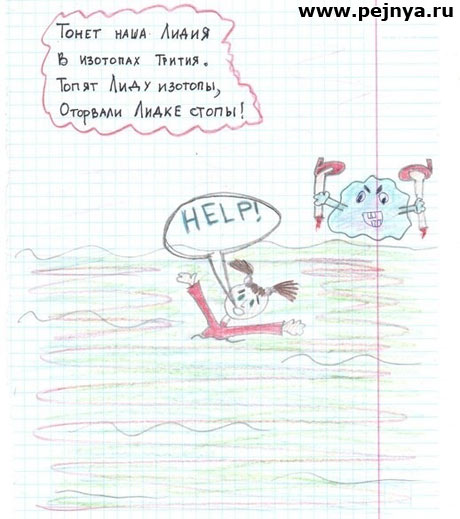 www.pejnya.ru
Тонет наша Лидия
В изотопах трития.
Топят Лиду изотопы,
Оторвали Лидке стопы!
HELP!